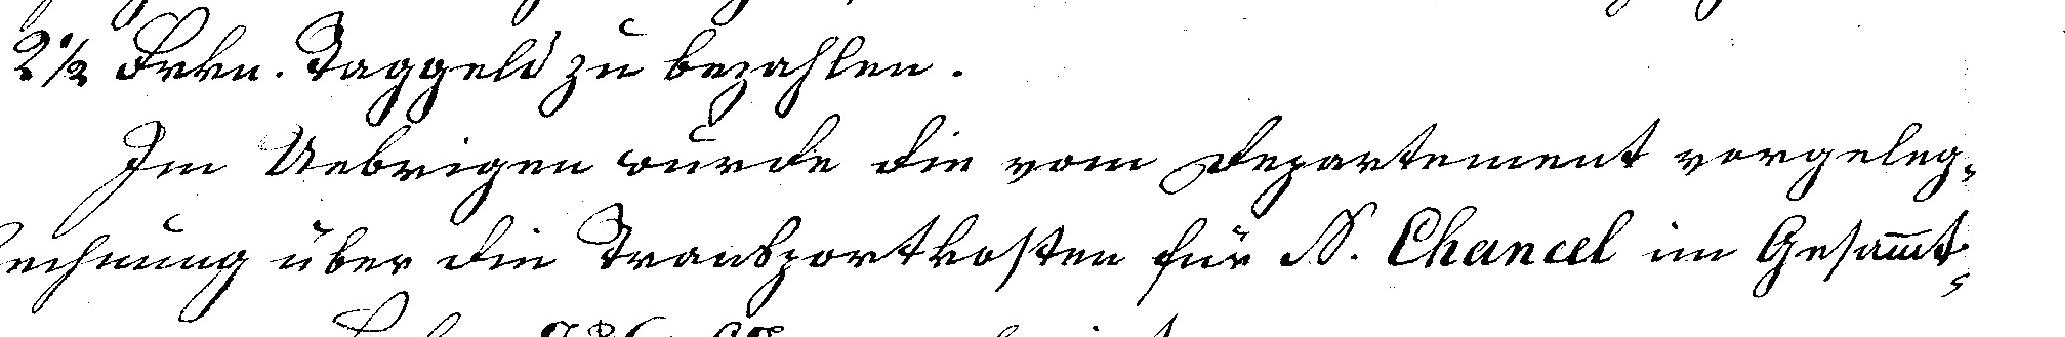 2½ Frkn. Taggeld zu bezahlen.
Im Uebrigen wurde die vom Departement vorgeleg-
echnung über die Transportkosten für N. Chancel im Gesam̅t-